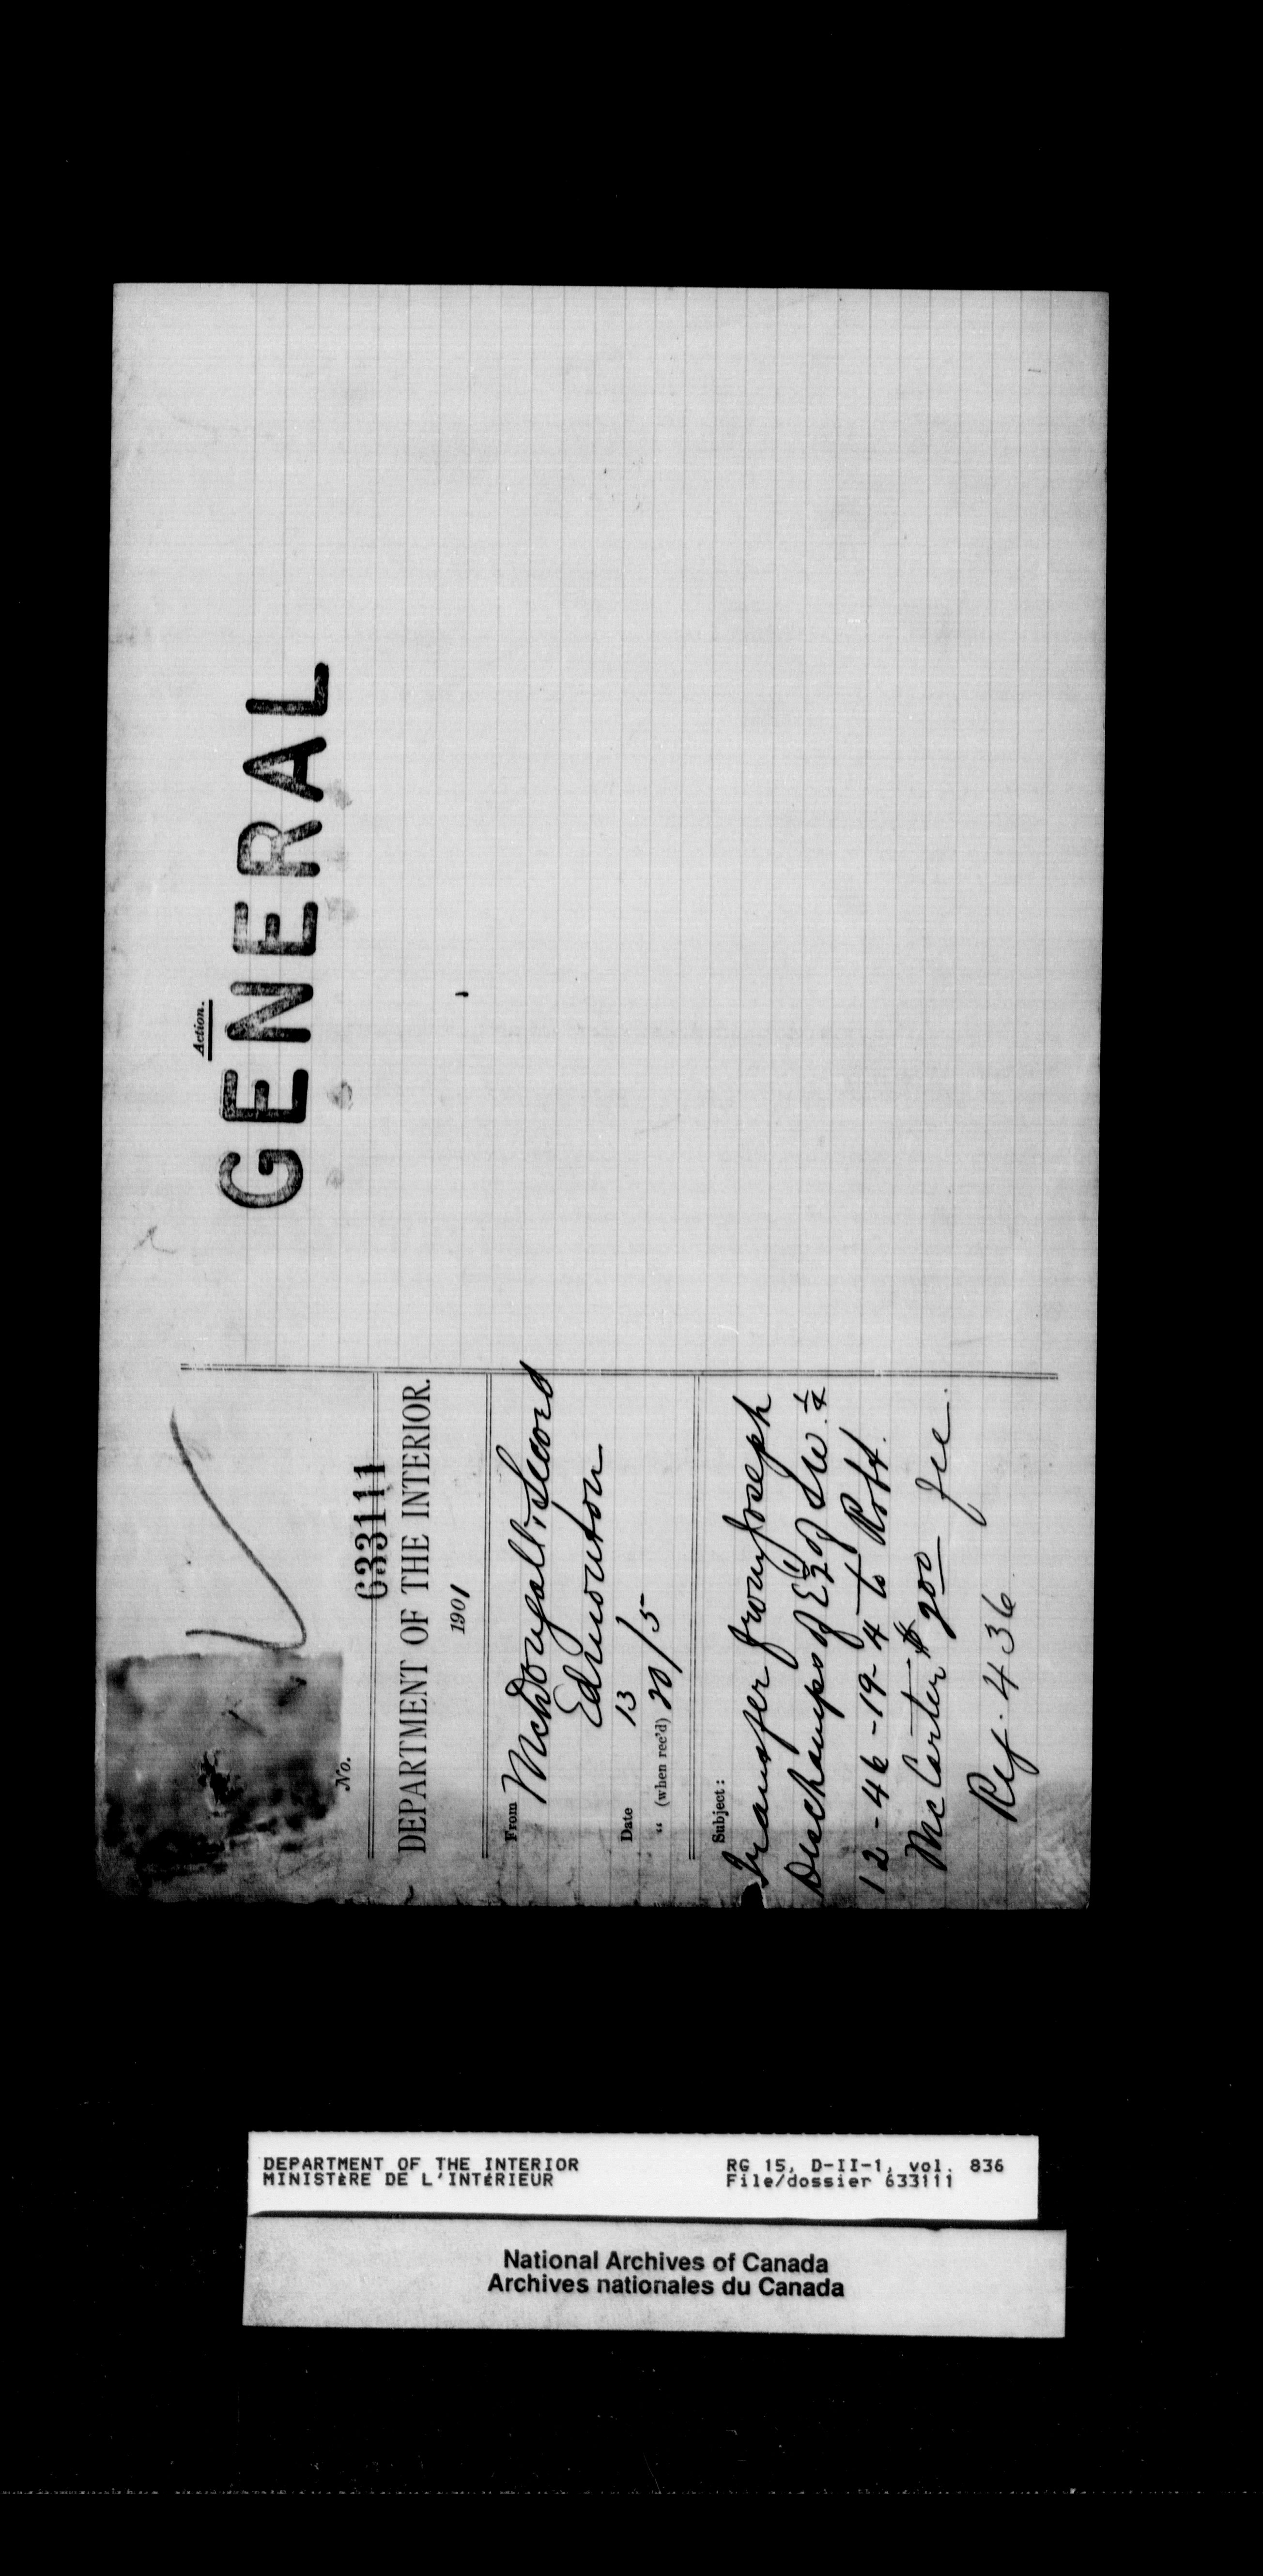 No. 633111
DEPARTMENT OF THE INTERIOR.
1901
From McDougall & Secord
Edmonton
Date 13
" (when rec'd) 20/5
Subject:
Transfer from Joseph
Deschamps of E ½ of SW. ¼
12-46-19-4 to Robt.
McCarter $ 200 fee.
Ref. 436
Action.
GENERAL
DEPARTMENT OF THE INTERIOR
MINISTÈRE DE L'INTÉRIEUR
RG 15, D-II-1, vol. 836
File/dossier 633111
National Archives of Canada
Archives nationales du Canada